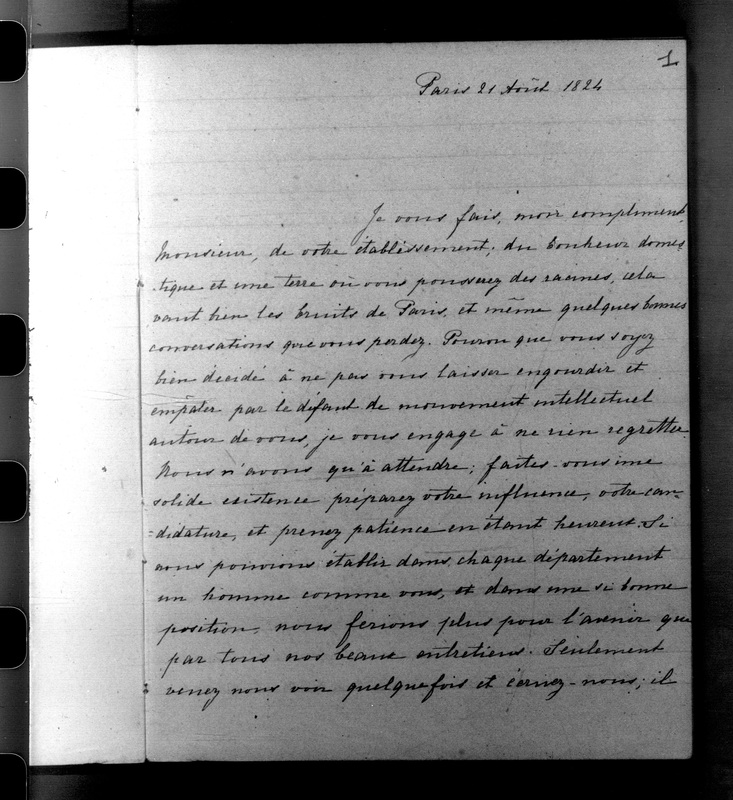 1
Paris 21 Août 1824
Je vous fais, mon compliment,
Monsieur, de votre établissement; du bonheur domes-
-tique et une terre où vous pousserez des racines, cela
vaut bien les bruits de Paris, et même quelques bonnes
conversations que vous perdez. Pourvu que vous soyez
bien décidé à ne pas vous laisser engourdir et
empâter par le défaut de mouvement intellectuel
autour de vous, je vous engage à ne rien regretter.
Nous n'avons qu'à attendre; faites-vous une
solide existence préparez votre influence, votre can-
-didature, et prenez patience en étant heureux. Si
nous pouvions établir dans chaque département
un homme comme vous, et dans une si bonne
position, nous ferions plus pour l'avenir que
par tous nos beaux entretiens. Seulement
venez nous voir quelquefois et écrivez-nous; il